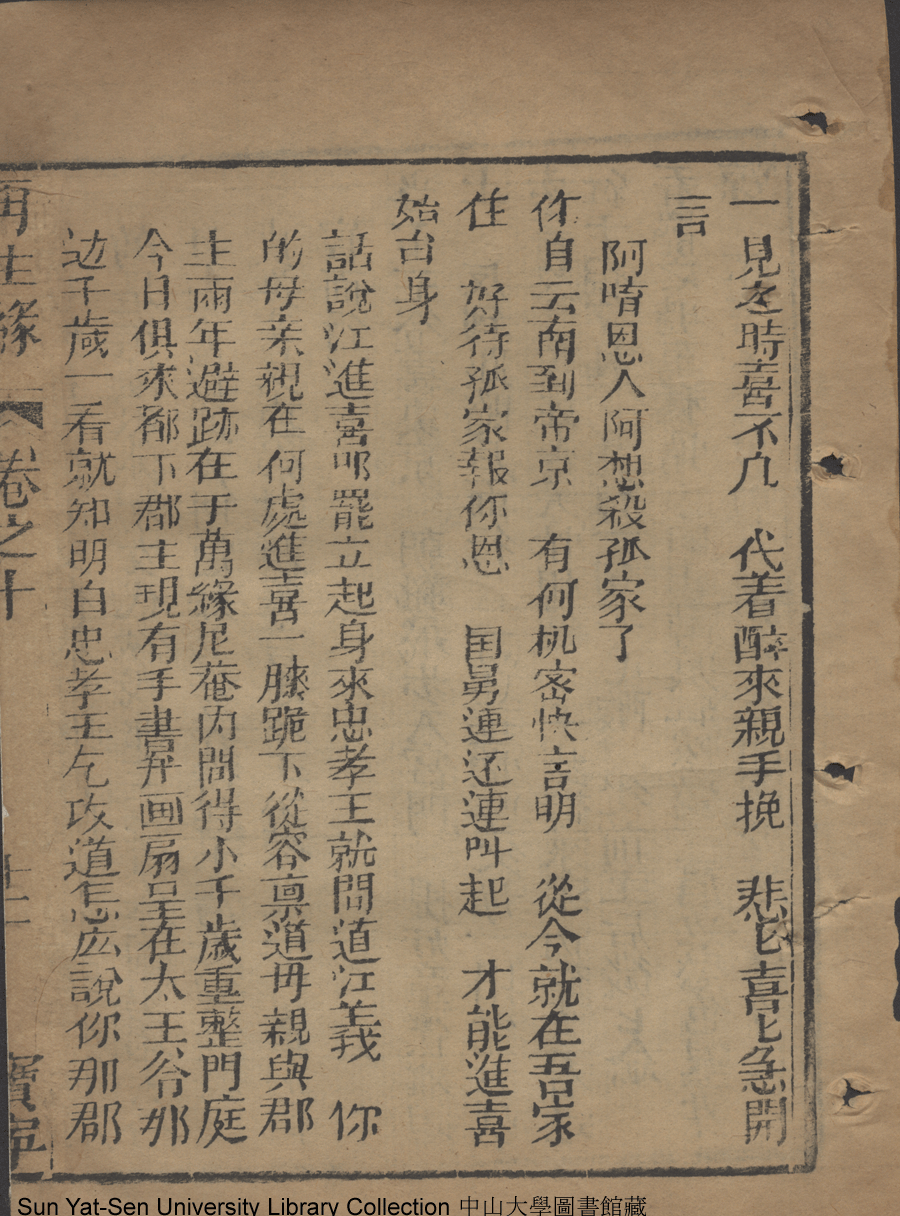 一見之時喜不凡　代着醉來親手挽　悲它喜它急開
言
阿唷恩人阿想殺孤家了
你自云南到帝京　有何机密快言明　從今就在吾家
住　好待孤家報你恩　国舅連还連叫起　才能進喜
始台身
話說江進喜叩罷立起身來忠孝王就問道江義　你
的母亲親在何處進喜一膝跪下從容禀道毋親與郡
主兩年避跡在于萬緣尼菴内問得小千歲重整門庭
今日俱來都下郡主現有手書并画扇呈在太王爷那
边千歲一看就知明白忠孝王乞攻道怎庅說你那郡
再生緣　卷之十　寳寧
Sun Yat-Sen University Library Collection 中山大學圖書館藏